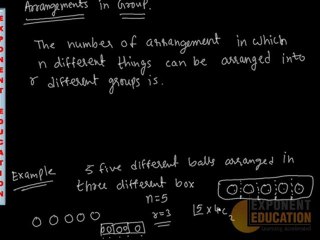 Arrangements in Group.
The number of arrangement in which
n different things can be arranged into
r different groups is.
Example
5 five different balls arranged in
three different box
n=5
r=3
EXPONENT EDUCATION
EXPONENT
EDUCATION